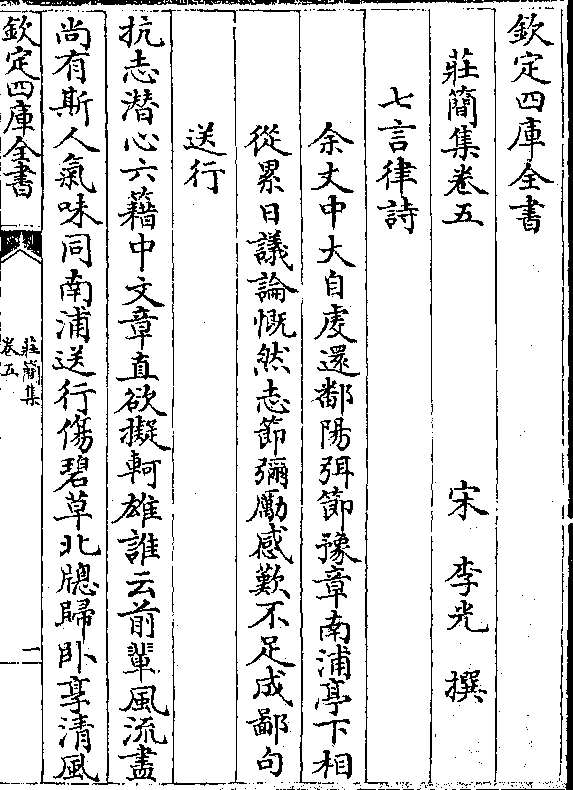 欽定四庫全書
莊簡集卷五
宋 李光 撰
七言律詩
余丈中大自虔還鄱陽弭節豫章南浦亭下相
從累日議論慨然志節彌勵感歎不足成鄙句
送行
抗志潛心六籍中文章直欲擬軻雄誰云前輩風流盡
尚有斯人氣味同南浦送行傷碧草北牕歸卧享清風
欽定四庫全書
莊簡集
卷五
一